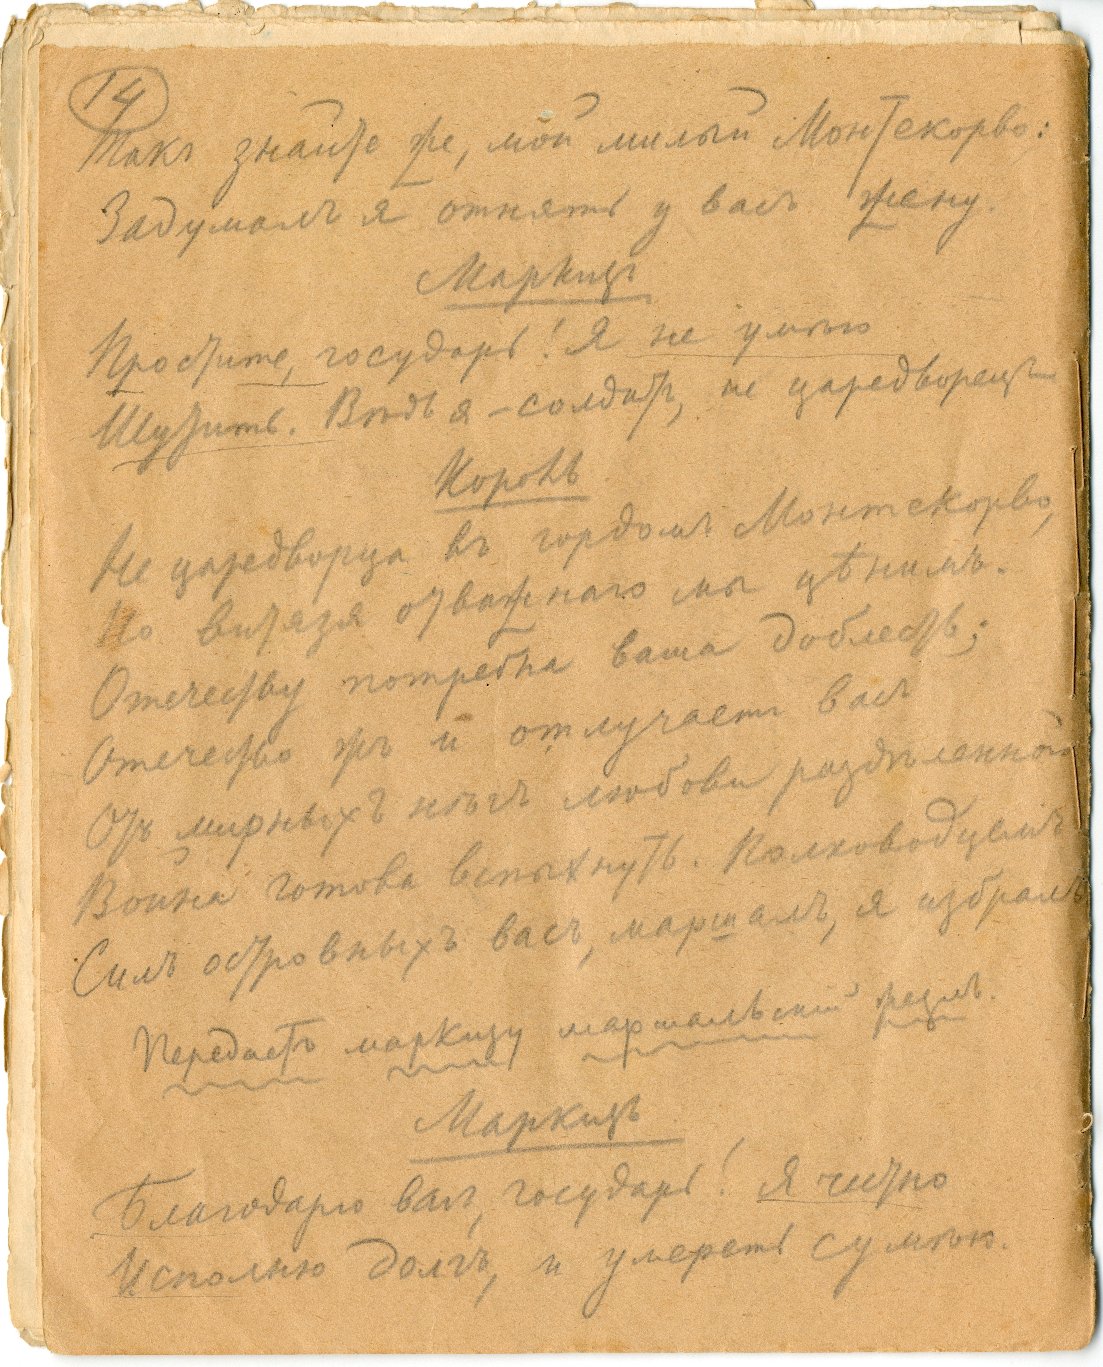 14
Такъ знайте же, мой милый Монтекорво:
Задумалъ я отнять у васъ жену.
Маркизъ
Простите, государь! Я не умѣю
Шутить. Вѣдь я – солдатъ, не царедворецъ
Король
Не царедворца въ гордомъ Монтекорво,
Но витязя отважнаго мы цѣнимъ.
Отечеству потребна ваша доблесть;
Отечество жъ и отлучаетъ васъ
Отъ мирныхъ нѣгъ любови раздѣленной
Война готова вспыхнуть. Полководцемъ
Силъ островныхъ васъ, маршалъ, я избралъ
Передаетъ маркизу маршальскій жезлъ.
Маркизъ
Благодарю васъ, государь! Я честно
Исполню долгъ, и умереть сумѣю.